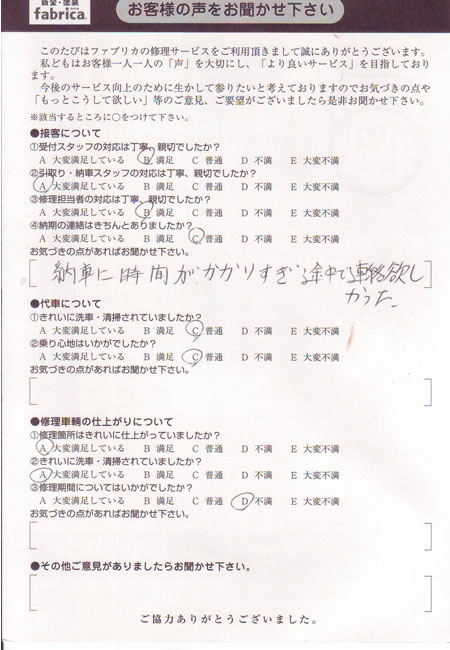 鈑金・塗装
fabrica.
お客様の声をお聞かせ下さい
このたびはファブリカの修理サービスをご利用頂きまして誠にありがとうございます。
私どもはお客様一人一人の「声」を大切にし、「より良いサービス」を目指しており
ます。
今後のサービス向上のために生かして参りたいと考えておりますのでお気づきの点や
「もっとこうして欲しい」等のご意見、ご要望がございましたら是非お聞かせ下さい。
※該当するところに○をつけて下さい。
●接客について
①受付スタッフの対応は丁寧、親切でしたか?
A 大変満足している B 満足 C 普通 D 不満 E 大変不満
②引取り・納車スタッフの対応は丁寧、親切でしたか?
A 大変満足している B 満足 C 普通 D 不満 E 大変不満
③修理担当者の対応は丁寧、親切でしたか?
A 大変満足している B 満足 C 普通 D 不満 E 大変不満
④納期の連絡はきちんとありましたか?
A 大変満足している B 満足 C 普通 D 不満 E 大変不満
お気づきの点があればお聞かせ下さい。
納車に時間がかかりすぎ途中で連絡欲し
かった
●代車について
①きれいに洗車・清掃されていましたか?
A 大変満足している B 満足 C 普通 D 不満 E 大変不満
②乗り心地はいかがでしたか?
A 大変満足している B 満足 C 普通 D 不満 E 大変不満
お気づきの点があればお聞かせ下さい。
●修理車輌の仕上がりについて
①修理箇所はきれいに仕上がっていましたか?
A 大変満足している B 満足 C 普通 D 不満 E 大変不満
②きれいに洗車・清掃されていましたか?
A 大変満足している B 満足 C 普通 D 不満 E 大変不満
③修理期間についてはいかがでしたか?
A 大変満足している B 満足 C 普通 D 不満 E 大変不満
お気づきの点があればお聞かせ下さい。
●その他ご意見がありましたらお聞かせ下さい。
ご協力ありがとうございました。